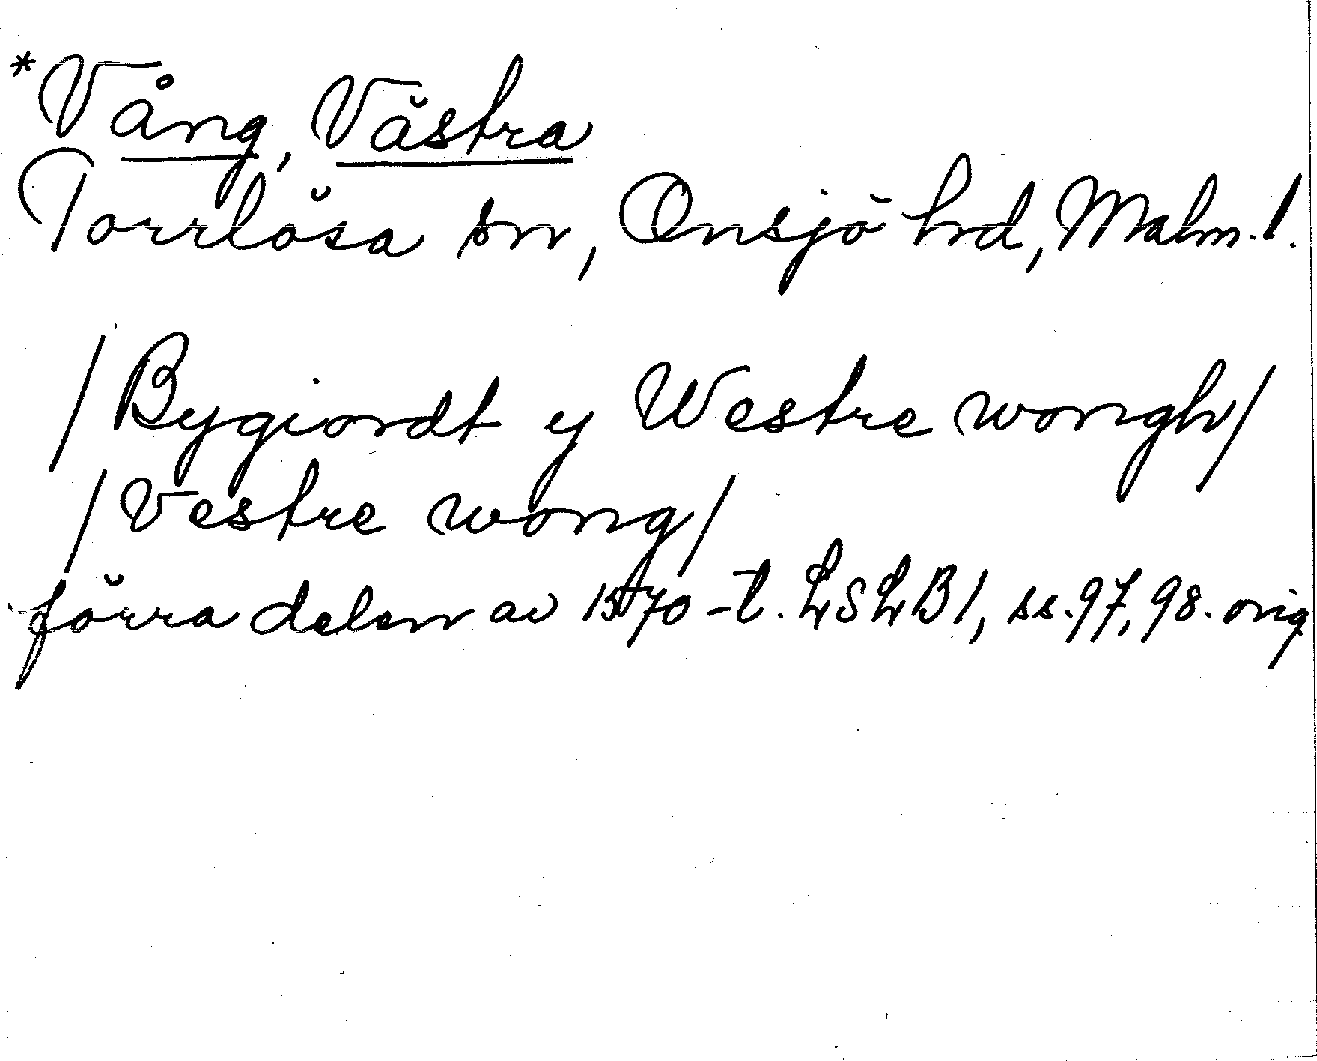 *Vång, Västra
Torrlösa sn, Onsjö hd, Malm. l.
/Bygiordt y Westre wongh/
/Vestre wong/
förra delen av 1570-t. LSLB 1, ss. 97, 98. orig